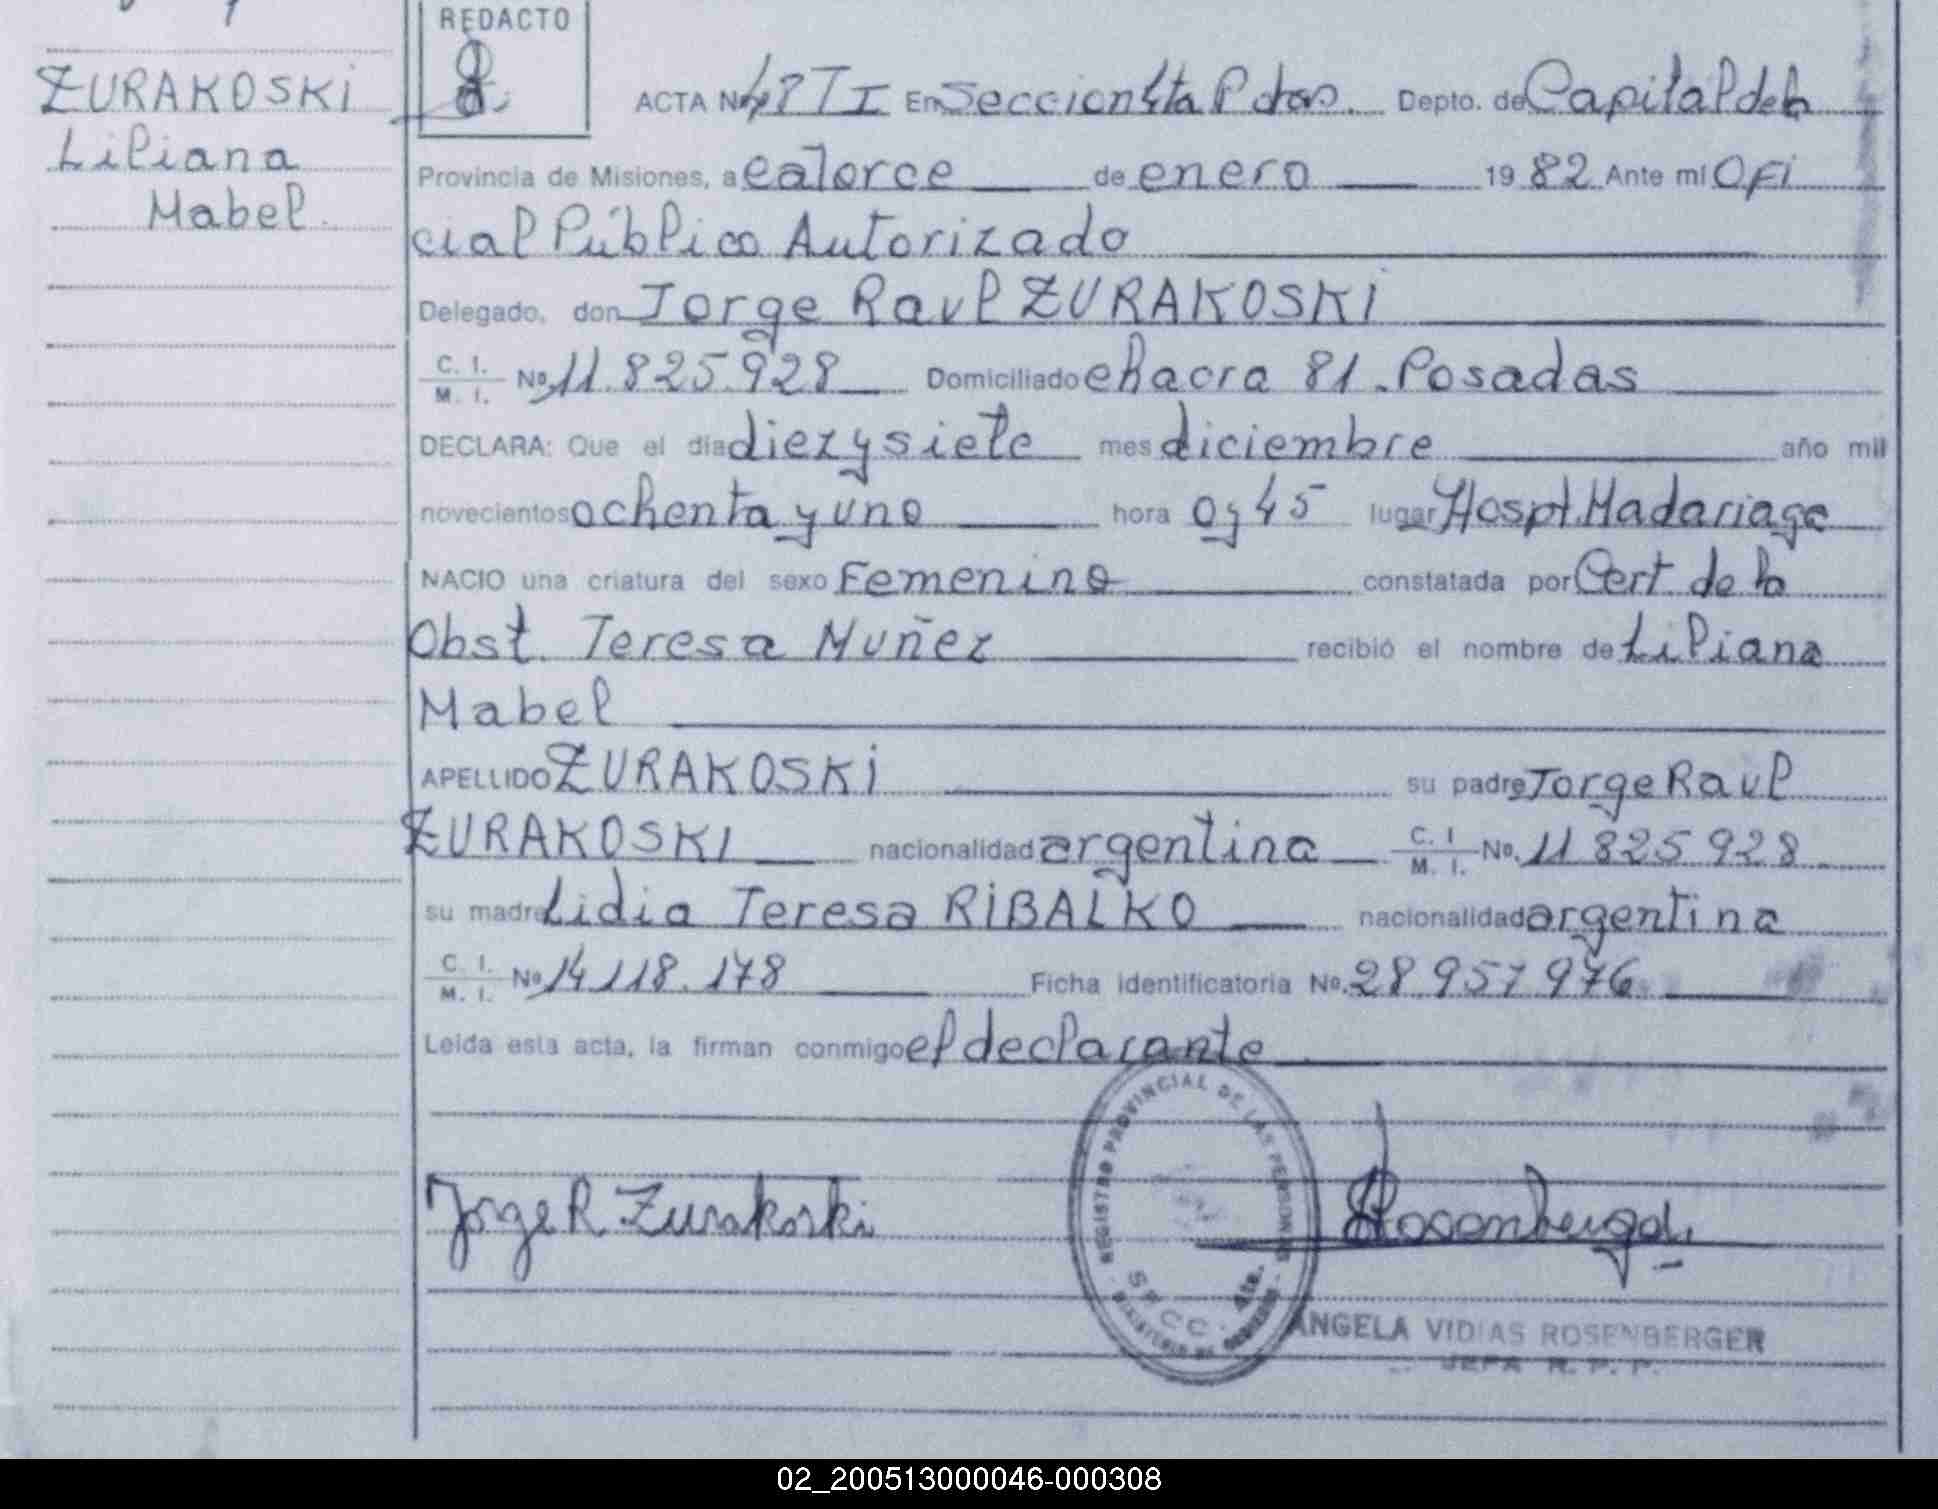 REDACTO
ZURAKOSKI
Liliana
Mabel
ACTA No 47 T I En Seccion 4ta Pdas. Depto. de Capital de la
Provincia de Misiones, a catorce de enero 1982 Ante mí Ofi
cial Público Autorizado
Delegado, don Jorge Raul ZURAKOSKI
C. I. M. I. No. 11.825.928 Domiciliado chacra 81. Posadas
DECLARA: Que el día diez y siete mes diciembre año mil
novecientos ochenta y uno hora 0 y 45 lugar Hospt. Madariaga
NACIO una criatura del sexo Femenino constatada por Cert de la
Obst. Teresa Muñez recibió el nombre de Liliana
Mabel
APELLIDO ZURAKOSKI su padre Jorge Raul
ZURAKOSKI nacionalidad argentina C. I M. I. No. 11 825 928
su madre Lidia Teresa RIBALKO nacionalidad argentina
C. I. M. I. No 14.118.178 Ficha identificatoria No. 28 957 976
Leída esta acta, la firman conmigo el declarante
REGISTRO PROVINCIAL DE LAS PERSONAS
Jorge R Zurakoski
4ta.
MINISTERIO DE GOBIERNO
ANGELA VIDIAS ROSENBERGER
JEFA R. P. P.
02_200513000046-000308